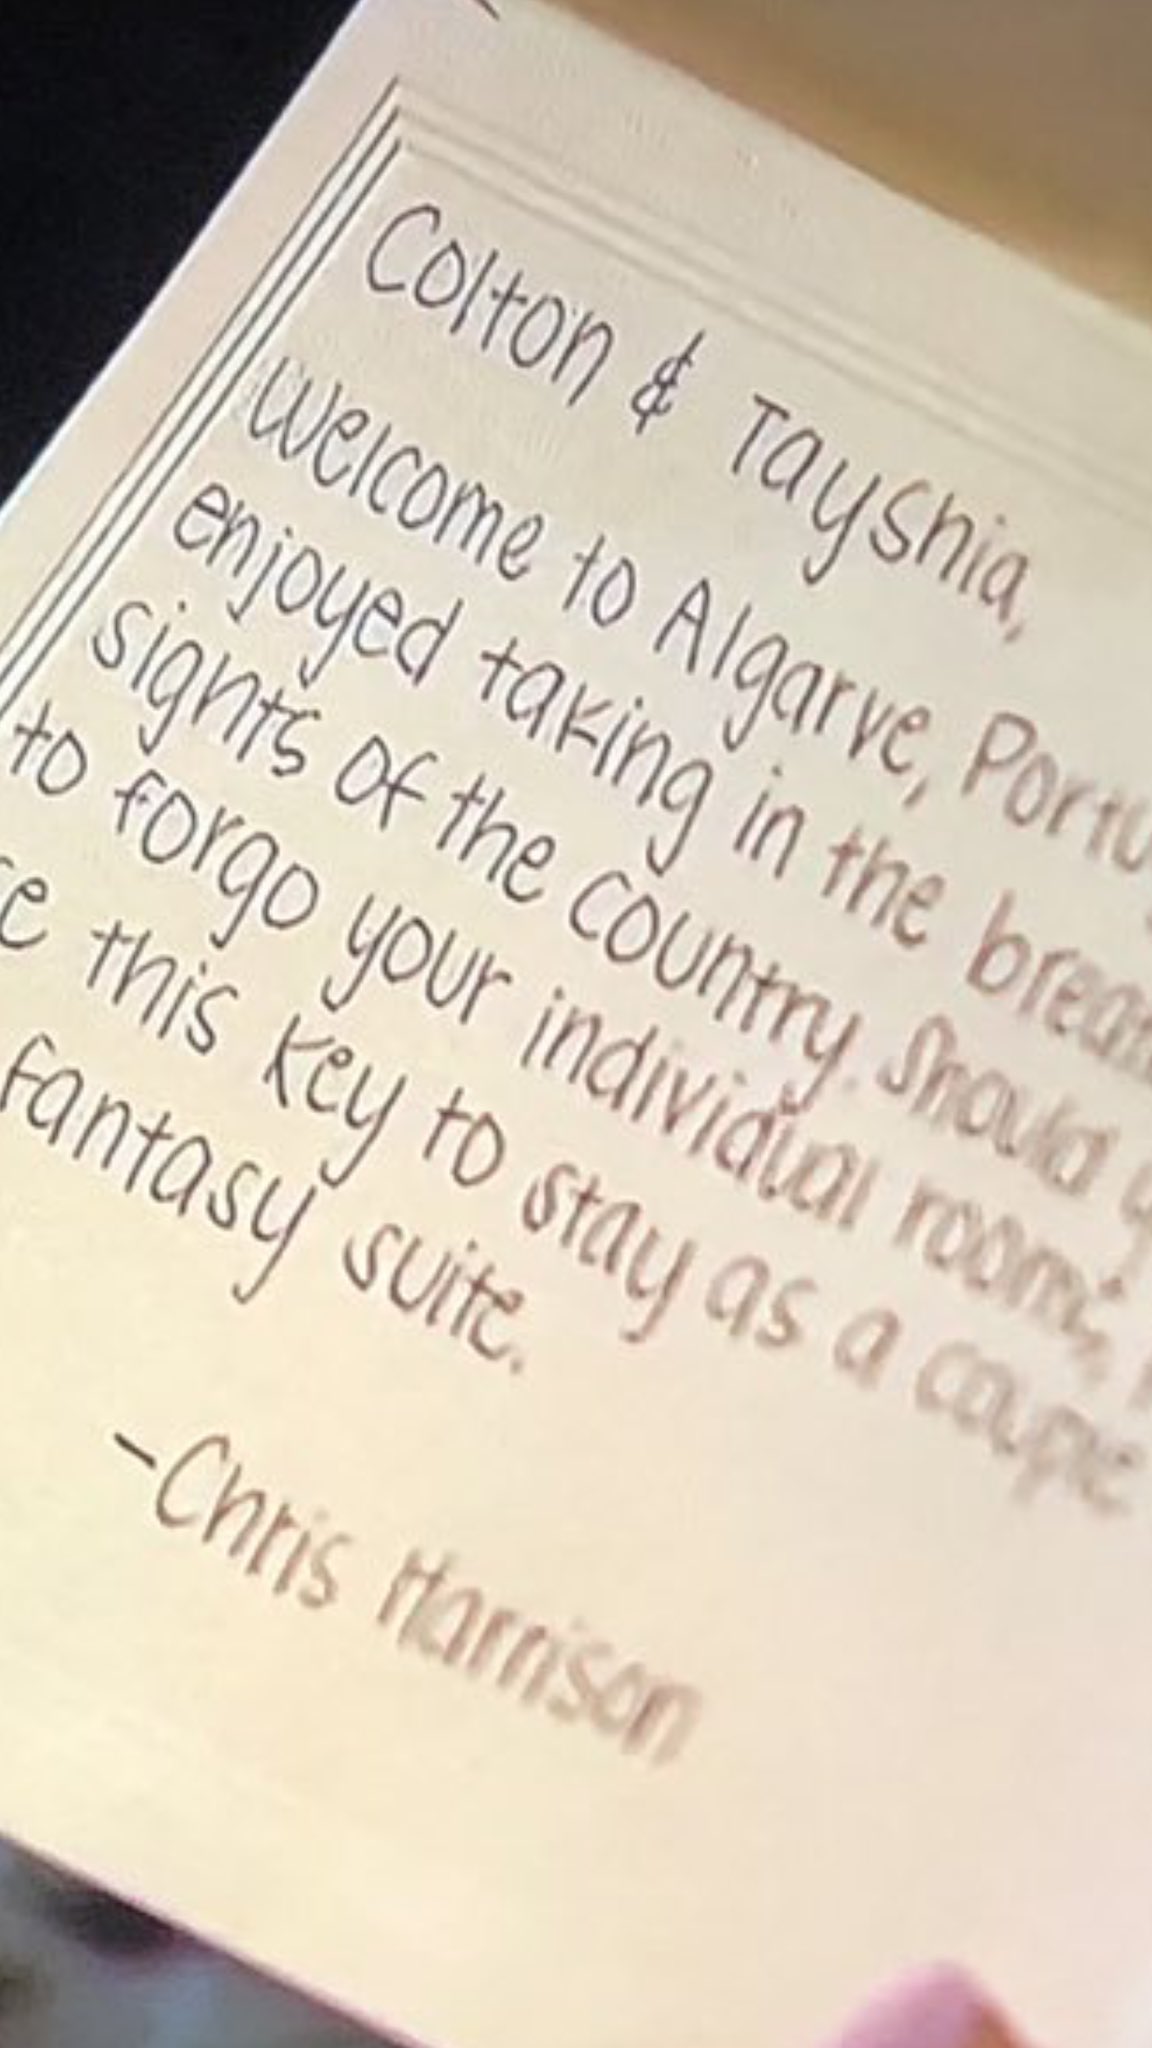 Colton & Tayshia,
Welcome to Algarve, Portu
enjoyed taking in the breat
sights of the country. Should y
to forgo your individual room,
e this key to stay as a
fantasy suite.
-Chris Harrison